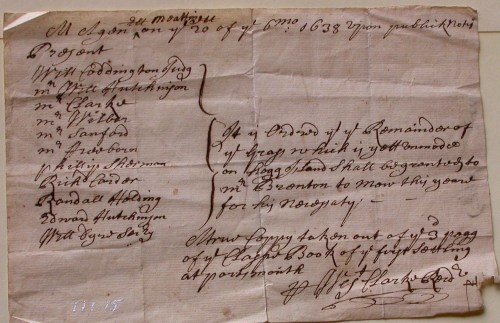 At A Gen:all Meatting on ye 20 of ye 6mo 1638 upon publick Notis
Present
Will Coddington Judg
mr Will Hutchinson
mr Clarke
mr Wilbor
mr Sanford
mr Freeborn
Phillip Sherman
Rich Carder
Randall Holding
Edward Hutchinson
Will Dyre Secry
It is Ordred yt ye Remainder of
ye Grass which is yett unmoded
on Hogg Island Shall be granted to
mr Brenton to Mow this yeare
for his Nesesaty: —
A true Coppy taken out of ye 3d paag
of ye Clarke Book of ye first Setling
at portsmouth
Wes Clarke Recdr